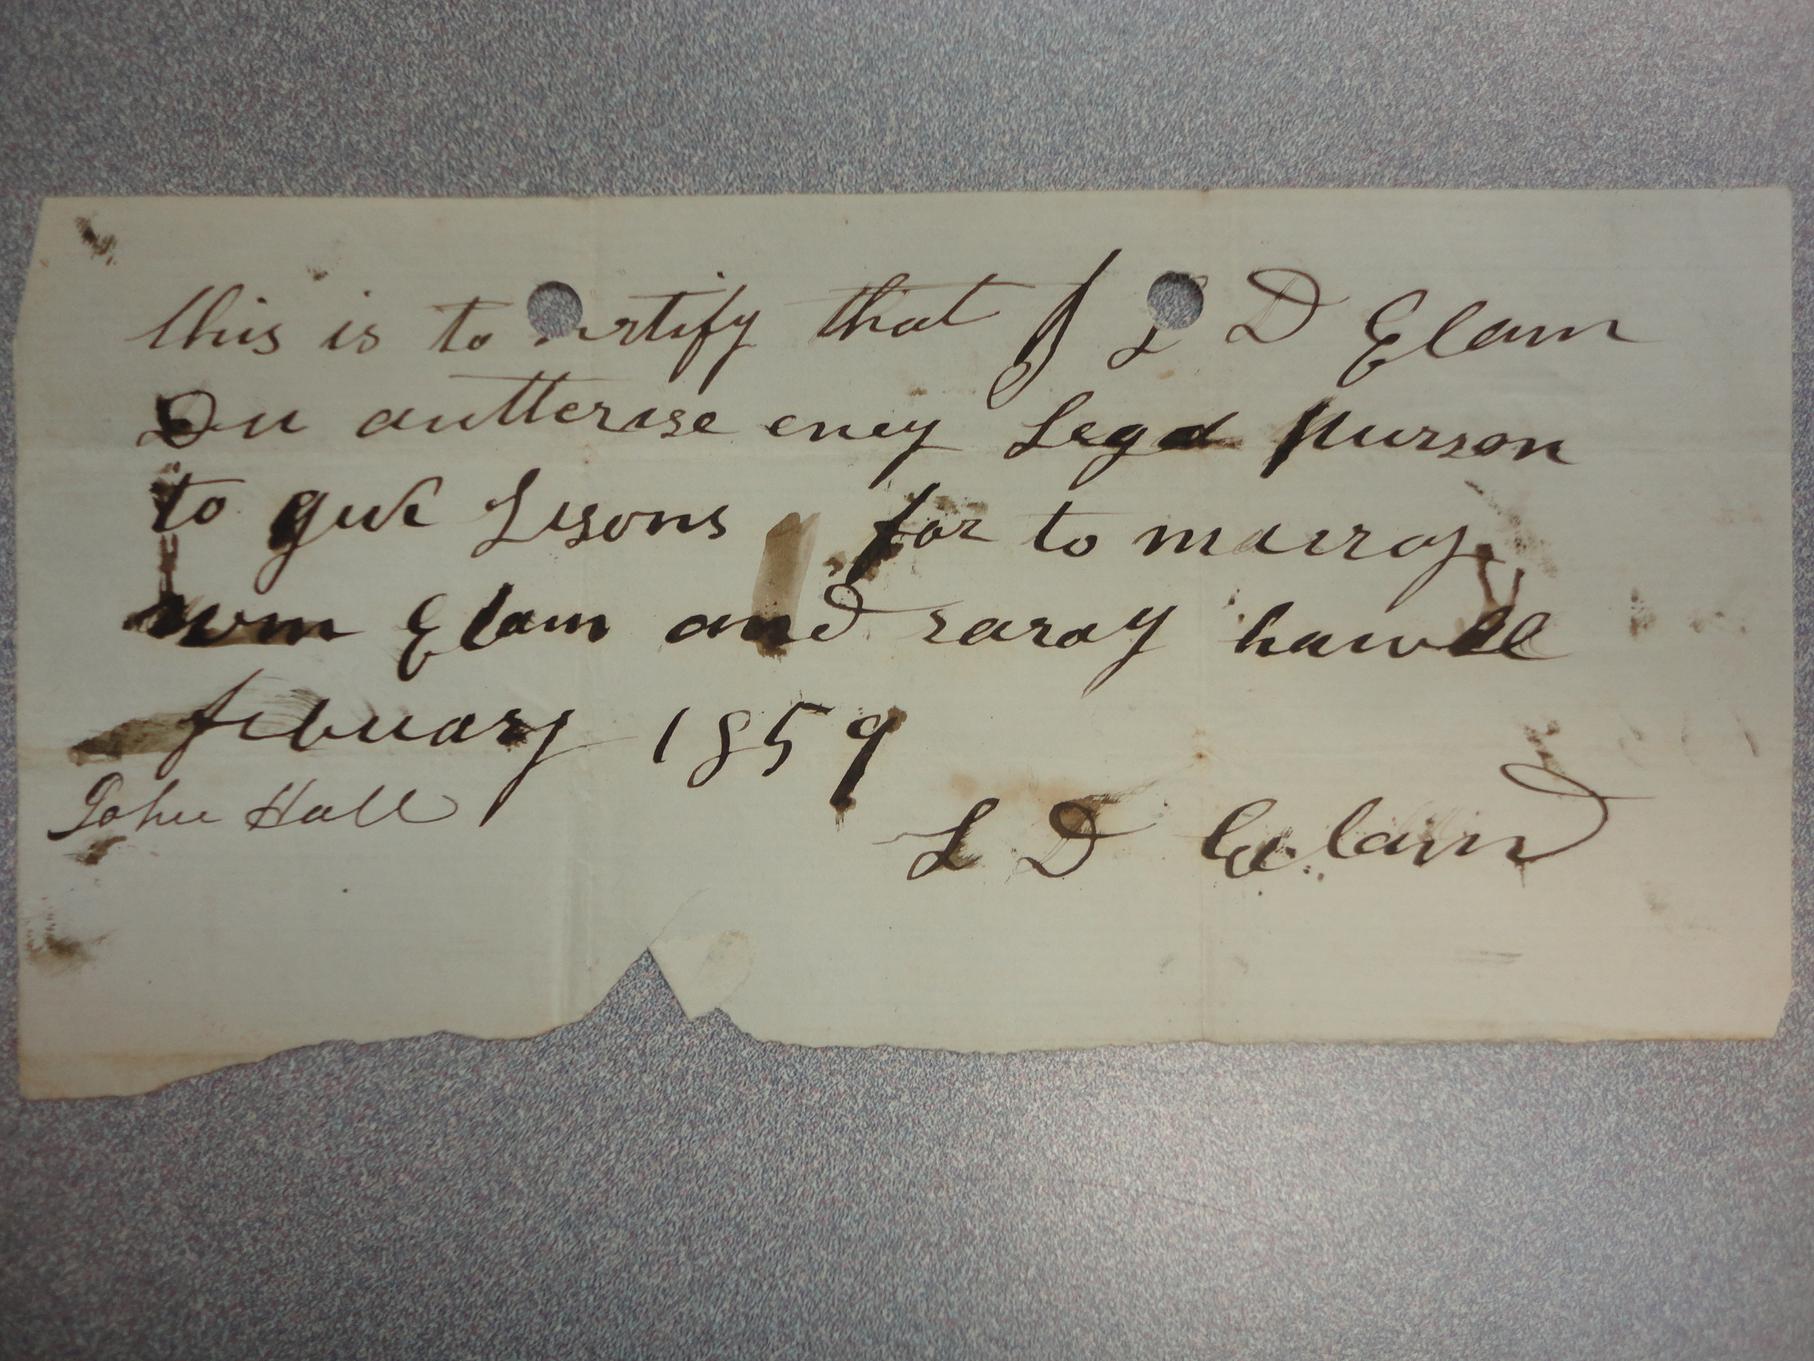 this is to certify that I L D Elam
Du autterise eney Legal purson
to give Lisons for to marray
wm Elam and saray hawll
febuary 1859
John Hall
L D Eelam